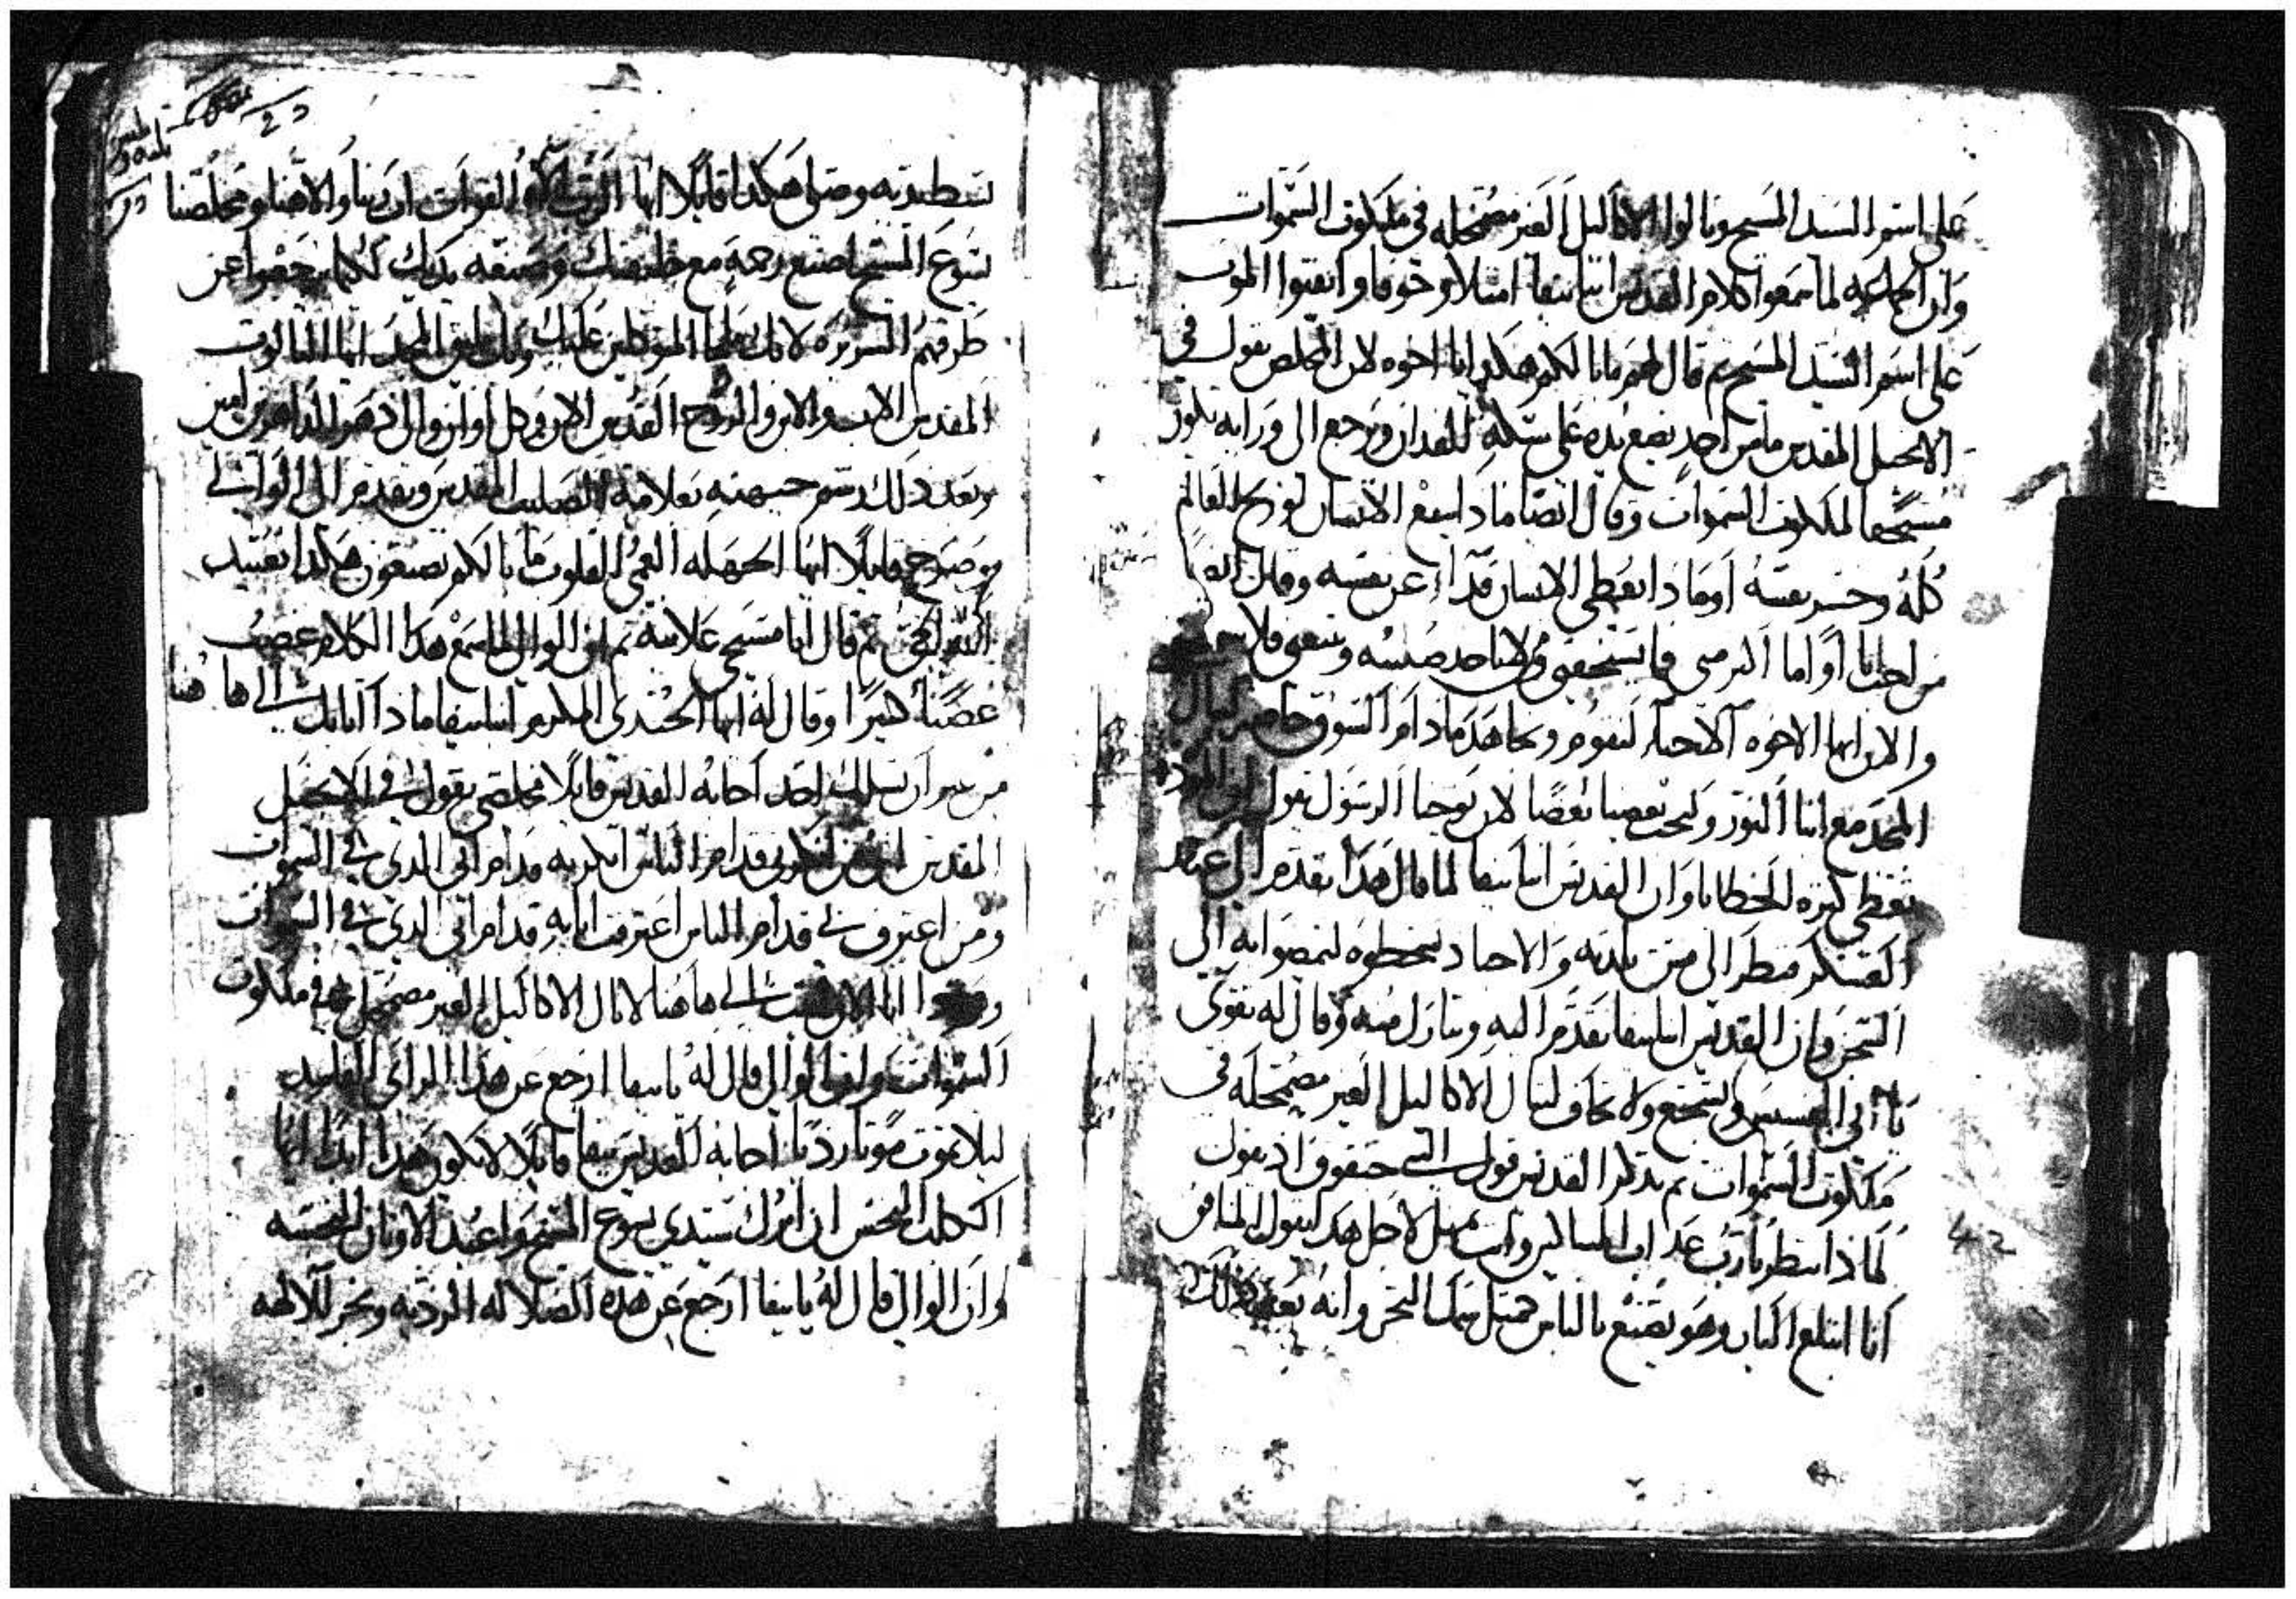 على اسم السيد المسيح وتنالوا الاكاليل الغير مضمحله في ملكوت السموات
وان الجماعه لما سمعوا كلام القديس انبا بيفا امتلاو خوفا وابغوا الموت
على اسم السيد المسيح ثم قال لهم ما بالكم هكدا يا اخوه لان المخلص يقول في
الانجيل المقدس ما من احد يضع يده على سكة للفدان ويرجع الى ورايه يكون
مستحقا لملكوت السموات وقال ايضا مادا ينفع الانسان لو ربح العالم
كله وخسر نفسه او مادا يعطي الانسان فدآ عن نفسه وقال ايضا
من احب ابا او اما اكتر مني فما يستحقني ومن لا ياخد صليبه ويتبعني فلا
والان ايها الاخوه الاحبآ لنقوم ونجاهد مادام السوق حاضر لننال
المجد مع ابنا النور ونحب بعضنا بعضا لان يوحنا الرسول يقول ان الموده
تغطي كتره الخطايا وان القديس انبا بيفا لما قال هدا تقدم الى عند
العسكر فنظر الى بلدته والاجناد يسخطوه ليمضوا به الى
السجن وان القديس انبا بيفا تقدم اليه وتبارك منه وقال له تقوى
يا ابي القسيس وتشجع ولا تخاف لتنال الاكاليل الغير مضمحله في
ملكوت السموات ثم تدكر القديس قول النبي حبقوق اد يقول
لمادا تنظر يارب عداب المساكين وانت تمهل لاجل هدا يقول المنافق
انا ابتلع البار وهو يصنع بالناس كمتل سمك البحر وانه بعد دلك
بسط يديه وصلى هكدا قايلا ايها الرب اله القوات ابو ربنا والاهنا ومخلصنا
يسوع المسيح اصنع رحمة مع خليقتك وصنعه يديك لكيما يرجعوا عن
طرقهم الشريره لانك ملجا المتوكلين عليك ولك يليق المجد ايها التالوت
المقدس الاب والابن والروح القدس الان وكل اوان والى دهر الداهرين امين
وبعد دلك رشم جبهته بعلامة الصليب المقدس وتقدم الى الوالي
وصرخ قايلا ايها الجهله العمي القلوب ما بالكم تصنعون هكدا بعبيد
الله الحي ثم قال انا مسيحي علانية ثم ان الوالي لما سمع هدا الكلام غضب
غضبا كبيرا وقال له ايها الجندي المكرم انبا بيفا مادا اتا بك الى ها هنا
من غير ان يسلك احد اجابه القديس قايلا مخلصي يقول في الانجيل
المقدس ان من انكرني قدام الناس انكرته قدام ابي الدي في السموات
ومن اعترف بي قدام الناس اعترفت انا به قدام ابي الدي في السموات
انا الان اتيت الى ها هنا لانال الاكاليل الغير مضمحل في ملكوت
السموات وان الوالي قال له يا بيفا ارجع عن هدا الراي الفاسد
ليلا تموت موتا رديا اجابه القديس بيفا قايلا لا يكون هدا ابدا ايها
الكلب النجس ان اترك سيدي يسوع المسيح واعبد الاوتان النجسه
وان الوالي قال له يا بيفا ارجع عن هده الضلاله الرديه وبخر للالهه